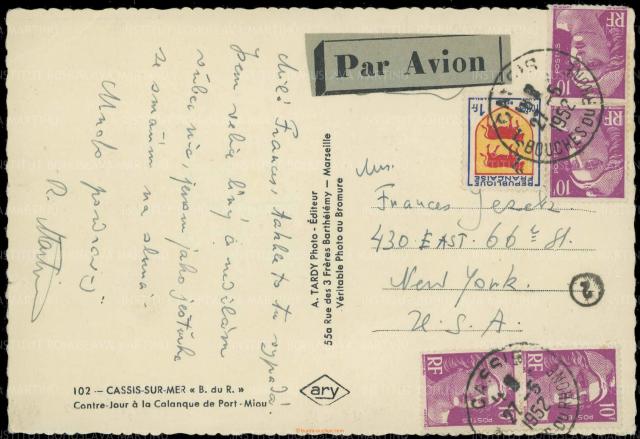 Milá Frances. Takhle to tu vypadá!
Jsem velice líný a nedělám
vůbec nic, jenom jako ještěrka
se smažím na slunci.
Mnoho pozdravů
B. Martinů
102 — CASSIS-SUR-MER « B. du R. »
Contre-Jour à la Calanque de Port-Miou
A. TARDY Photo - Éditeur
55a Rue des 3 Frères Barthélémy — Marseille
Véritable Photo au Bromure
ary
Par Avion
Mrs.
Frances Jezek
430 EAST. 66th St.
New York.
U.S.A.
2
RF
POSTES
10F
RF
POSTES
10F
1F
REPUBLIQUE
FRANÇAISE
CASSIS
1952
BOUCHES DU R
RF
POSTES
10F
RF
POSTES
10F
CASSIS
1952